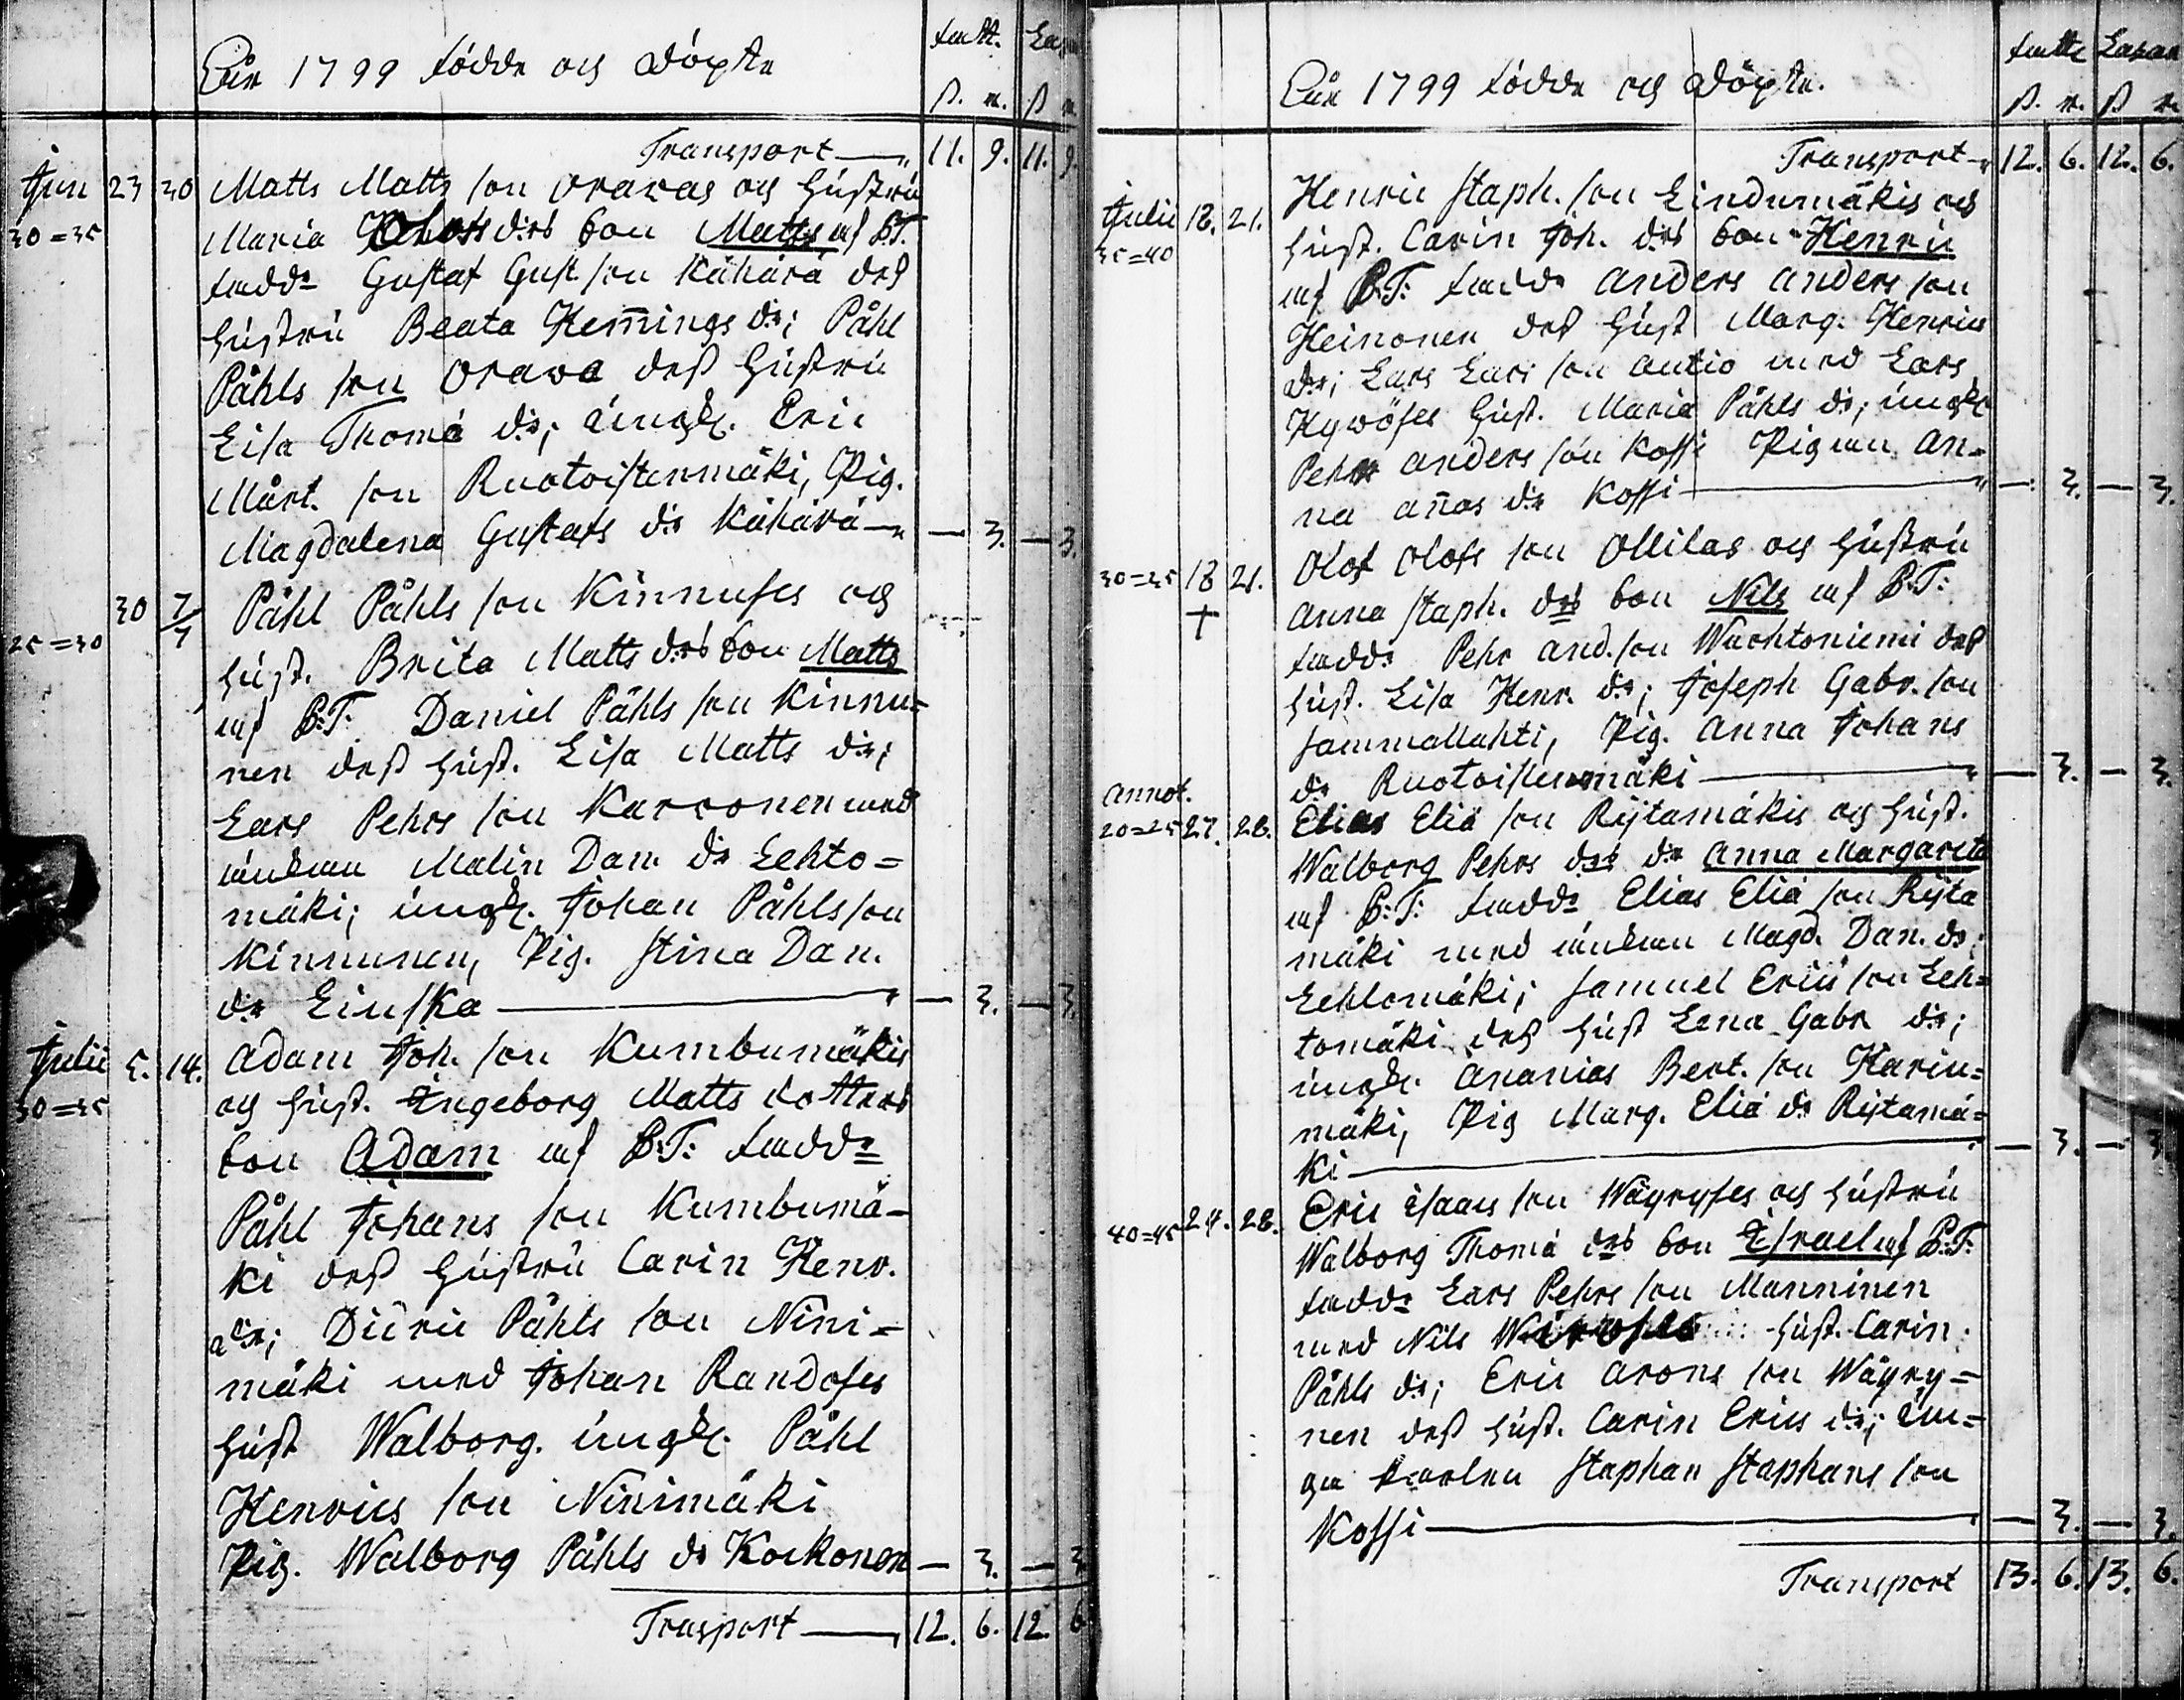 Åhr 1799 födde och döpte
fatt. Laz
ß. r. ß r
Transport 11. 9. 11. 9.
Jun 23 30 Matts Matts son Oravas och hustru
30=35 Maria Olofs drs son Matts af B.T.
fadd: Gustaf Gust. son Kähärä dess
hustru Beata Hem̄ings dr; Påhl
Påhls son Orava dess hustru
Lisa Thomæ dr; ungk. Eric
Mårt. son Ruotoistenmäki, Pig.
Magdalena Gustafs dr Kähärä — 3. — 3.
30 7/7 Påhl Påhls son Kinnuses och
25=30 hust. Brita Matts drs son Matts
af B:T: Daniel Påhls son Kinnu=
nen dess hust. Lisa Matts dr;
Lars Pehrs son Karvonen med
änkan Malin Dan. dr Lehto=
mäki; ungk. Johan Påhls son
Kinnunen, Pig. Stina Dan.
dr Leinska — 3. — 3.
Julii 5. 14. Adam Joh. son Kumbumäkis
30=35 och hust. Ingeborg Matts dotters
son Adam af B:T: fadd:
Påhl Johans son Kumbumä-
ki dess hustru Carin Henr.
dr; Diiric Påhls son Nini=
mäki med Johan Randoses
hust Walborg. ungk. Påhl
Henrics son Ninimäki
Pig. Walborg Påhls dr Kockonen — 3. — 3
Trasport 12. 6. 12. 6
Åhr 1799 födde och döpte.
fatte Lasar
ß. r. ß r.
Transport 12. 6. 12. 6.
Julii 18. 21. Henric Staph. son Lindumäkis och
35=40 hust. Carin Joh. drs son Henric
af B.T: fadd: Anders Anders son
Heinonen dess hust Marg. Henrics
dr; Lars Lars son Autio med Lars
Hyvöses hust. Maria Påhls dr; ungk
Pehr Anders son Kossi Pigan An=
na An̄as dr Kossi — 3. — 3.
30=35 18 21. Olof Olofs son Ollilas och hustru
+ Anna Staph. drs son Nils af B.T:
fadd: Pehr And. son Wachtoniemi dess
hust. Lisa Henr. dr; Joseph Gabr. son
Sammallahti, Pig. Anna Johans
dr Ruotoistenmäki — 3. — 3.
Annot.
20=25 27. 28. Elias Eliæ son Rijtamäkis och hust.
Walborg Pehrs drs dr Anna Margareta
af B:T: fadd: Elias Eliæ son Rijta
mäki med änkan Magd. Dan. dr:
Lehtomäki; Samuel Erics son Leh=
tomäki dess hust Lena Gabr dr;
ungk. Ananias Bert. son Harju=
mäki, Pig Marg. Eliæ dr Rijtamä=
ki — 3. — 3
40=45 24. 28. Eric Isaacs son Wäyryses och hustru
Walborg Thomæ drs son Israel af B:T:
fadd: Lars Pehrs son Manninen
med Nils hust. Carin
Påhls dr; Eric Arons son Wäyry=
nen dess hust. Carin Erics dr; un=
ga karlen Staphan Staphans son
Kossi — 3. — 3.
Transport 13. 6. 13. 6.